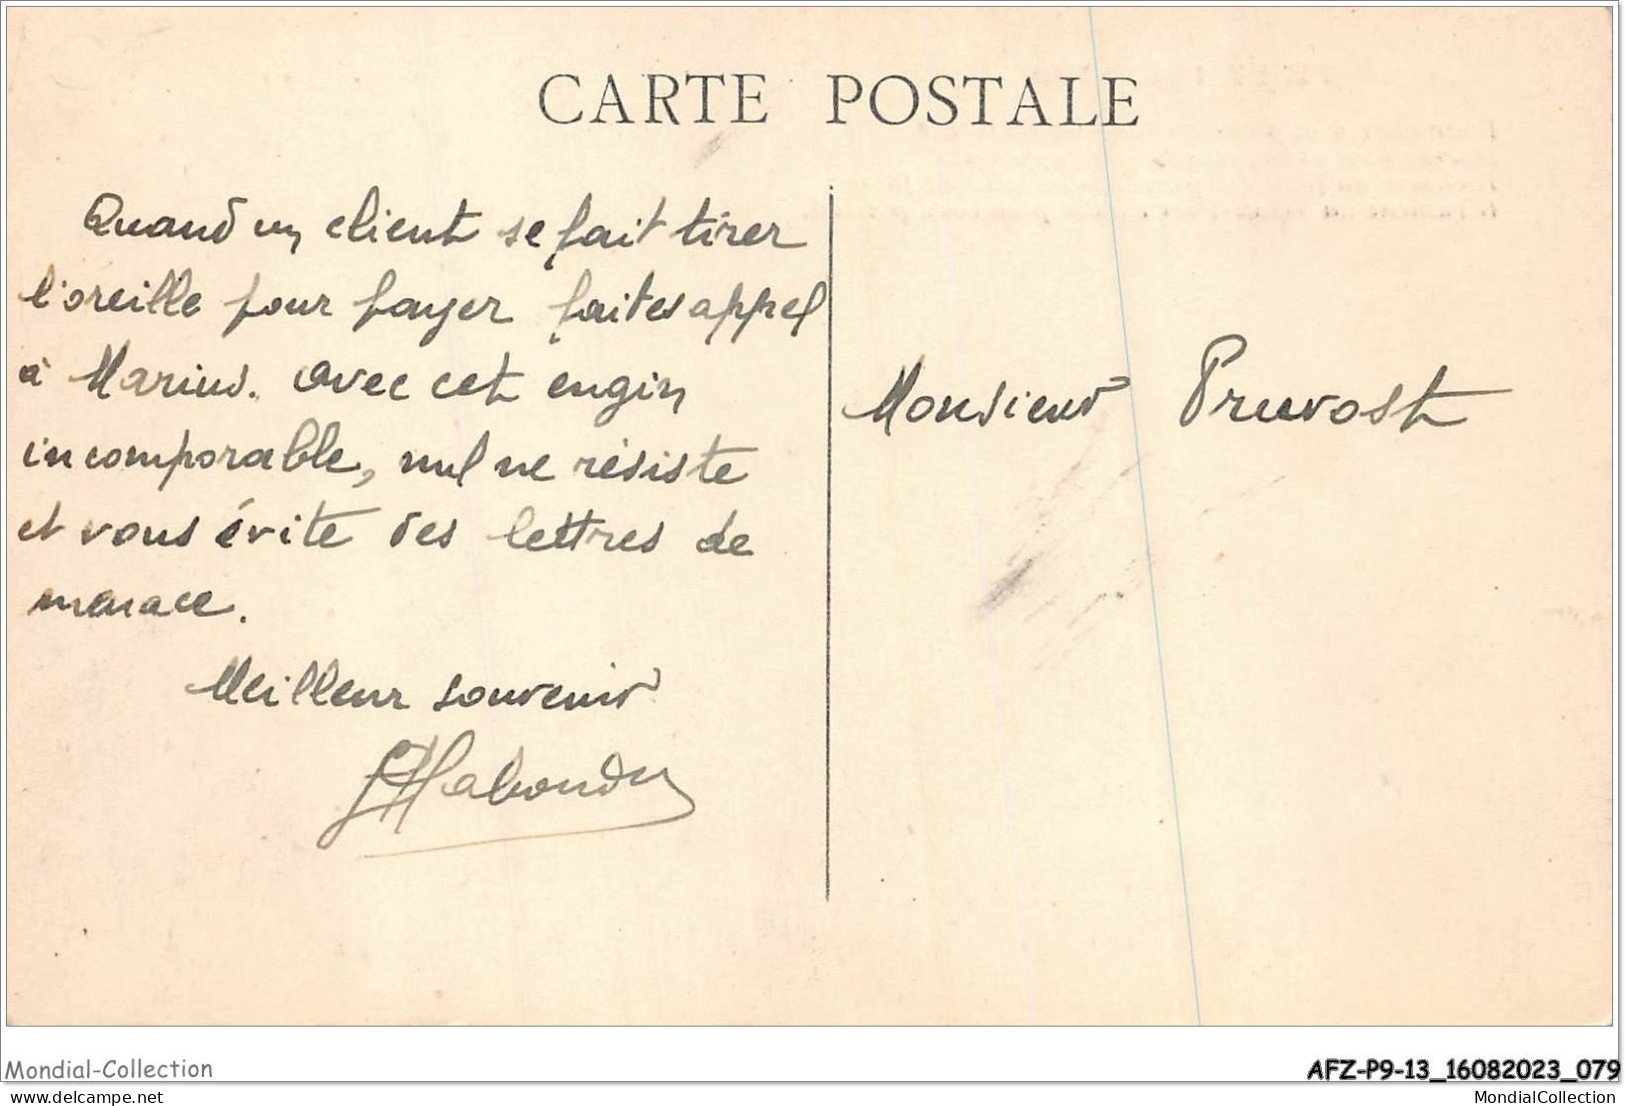 CARTE POSTALE
Quand un client se fait tirer
l'oreille pour payer faites appel
à Marius. avec cet engin
incomporable, nul ne résiste
et vous évite des lettres de
menace.
Meilleur souvenir
Monsieur Pruvost
Mondial-Collection
AFZ-P9-13_16082023_079
delcampe.net
MondialCollection